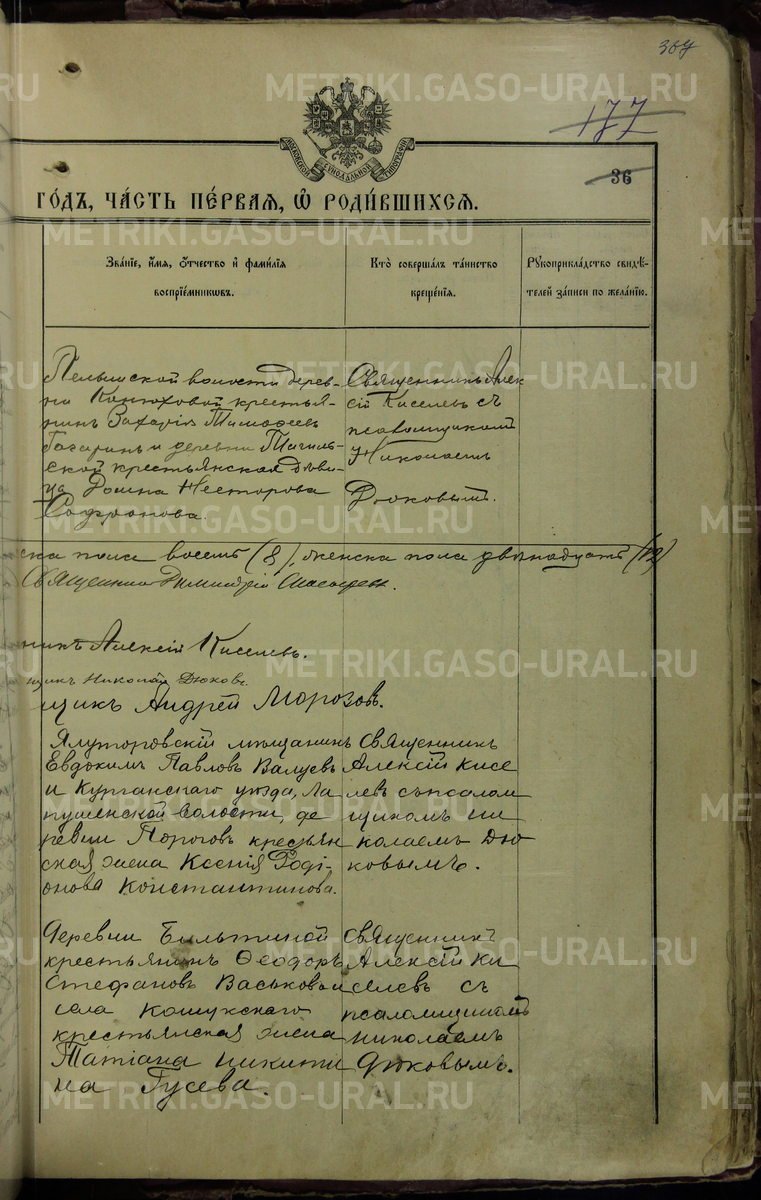 METRIKI.GASO-URAL.RU
177
36
МОСКОВСКОЙ СѴНОДАЛЬНОЙ ТИПОГРАФІИ
ГОДЪ, ЧАСТЬ ПЕРВАЯ, Ѡ РОДИВШИХСЯ.
Званіе, имя, отчество и фамилія воспріемниковъ.
Кто совершалъ таинство крещенія.
Рукоприкладство свидѣтелей записи по желанію.
Пелымской волости дерев-
ни Конюховой крестья-
нинъ Захарія Тимофеевъ
Гагаринъ и деревни Тагиль-
ской крестьянская дѣви-
ца Домна Несторова
Софронова.
Священникъ Алек
сій Киселевъ съ
псаломщикомъ
Николаемъ
Дюковымъ.
ска пола восемь (8), женска пола двѣнадцать (12)
Священникъ Димитрій
никъ Алексій Киселевъ.
щикъ Николай Дюковъ.
щикъ Андрей Морозовъ.
Ялуторовскій мѣщанинъ
Евдокимъ Павловъ Валуевъ
и Курганскаго уѣзда, Ла
пушенской волости, де
ревни Пороговъ крестьян
ская жена Ксенія Роді-
онова Константинова.
Священникъ
Алексій Кисе
левъ съ псалом
щикомъ Ни
колаемъ Дю
ковымъ.
Деревни
крестьянинъ Ѳеодоръ
Стефановъ Васьковъ и
села Кошукскаго
крестьянская жена
Татіана Никити
на Гусева.
Священникъ
Алексій Ки
селевъ съ
псаломщикомъ
Николаемъ
Дюковымъ.